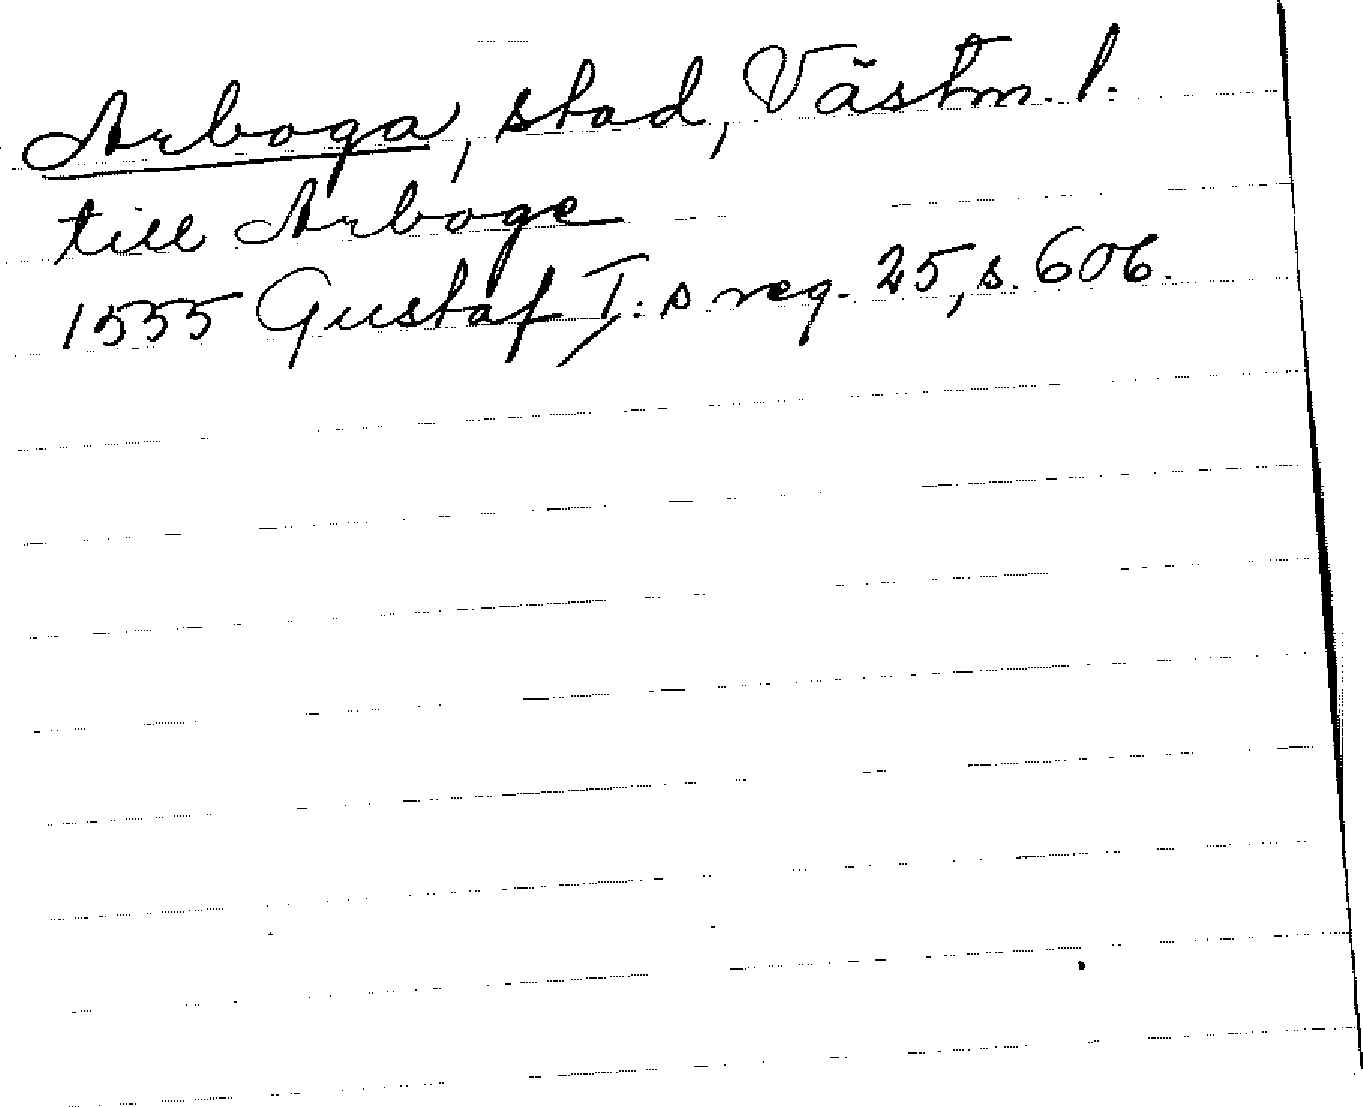 Arboga, stad, Västm. l.
till Arboge
1555 Gustaf I:s reg. 25, s. 606.